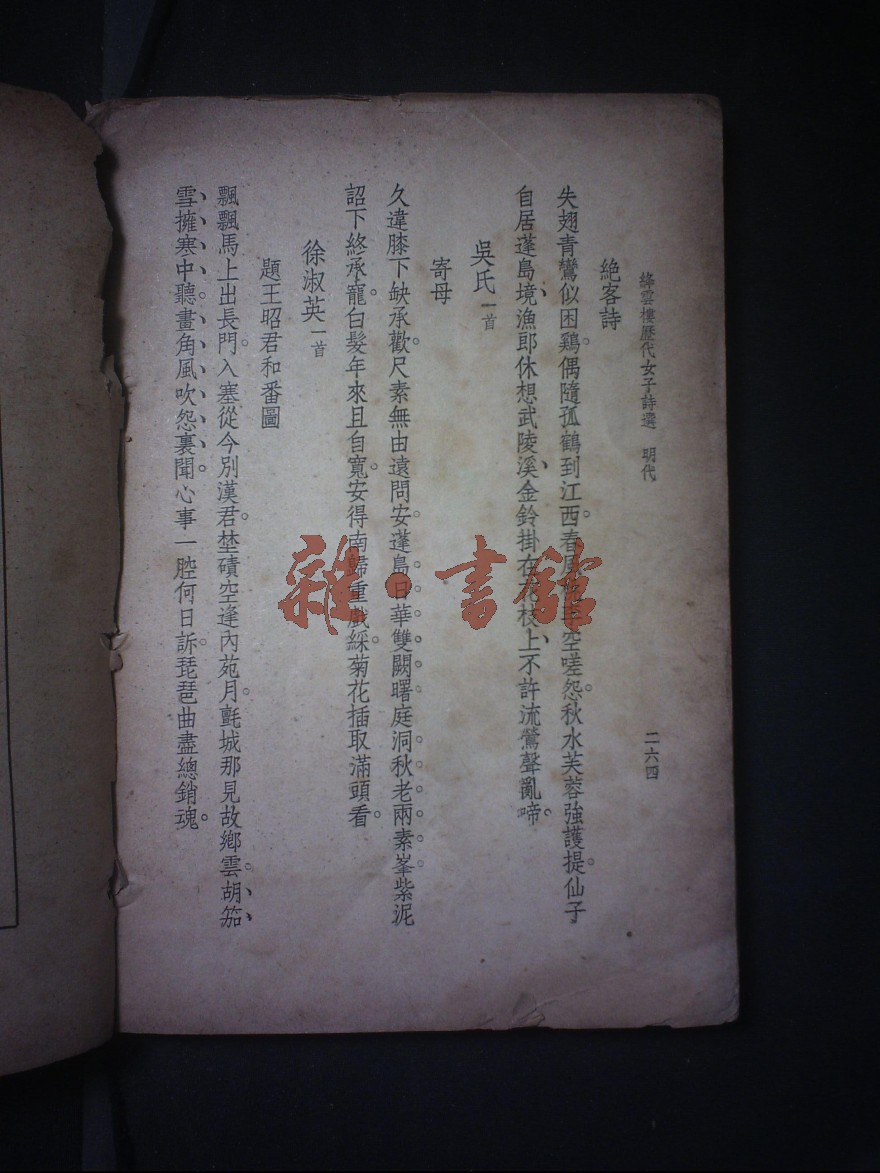 絳雲樓歷代女子詩選　明代　二六四
絕客詩
失翅青鸞似困鷄。偶隨孤鶴到江西。春風空嗟怨。秋水芙蓉強護提。仙子
自居蓬島境、漁郎休想武陵溪、金鈴掛在花枝上、不許流鶯聲亂啼。
吳氏一首
寄母
久違膝下缺承歡。尺素無由遠問安。蓬島日華雙闕曙。庭洞秋老兩素峯。紫泥
詔下終承寵。白髮年來且自寬。安得南歸重戲綵。菊花插取滿頭看。
徐淑英一首
題王昭君和番圖
飄飄馬上出長門。入塞從今別漢君。埜磧空逢內苑月。氈城那見故鄉雲。胡笳
雪擁寒中聽。畫角風吹怨裏聞。心事一腔何日訴。琵琶曲盡總銷魂。
雜·書館